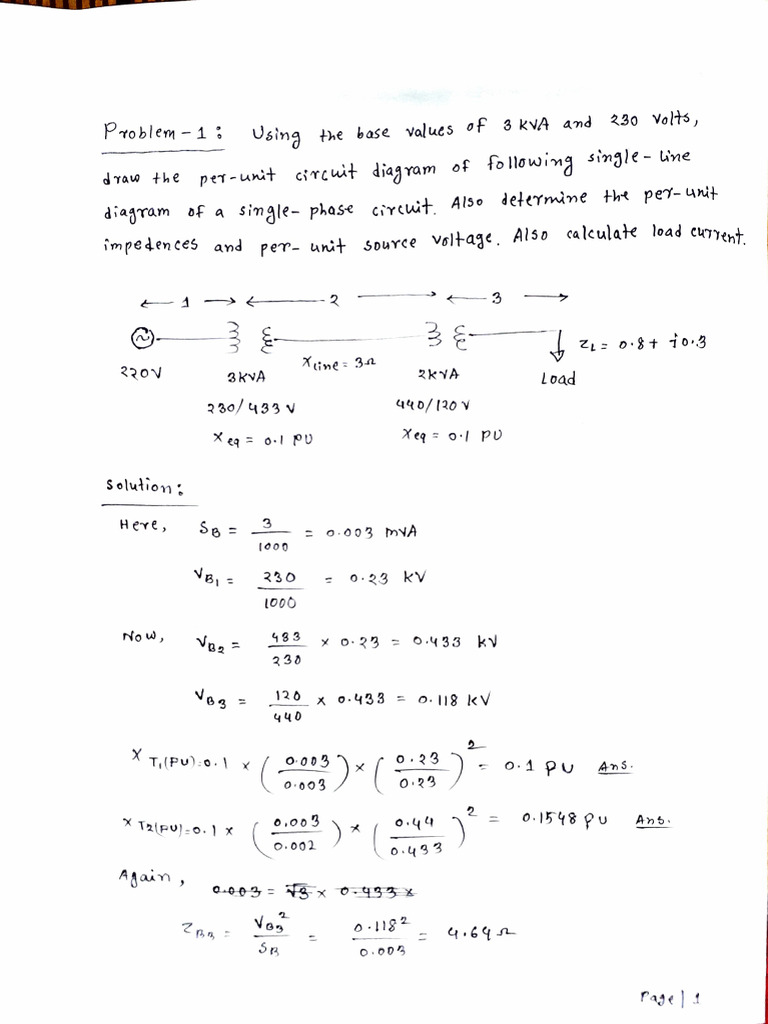 Problem-1: Using the base values of 3 kVA and 230 volts,
draw the per-unit circuit diagram of following single-line
diagram of a single-phase circuit. Also determine the per-unit
impedences and per-unit source voltage. Also calculate load current.
← 1 → ← 2 → ← 3 →
220V
3KVA
230/433 V
X eq = 0.1 PU
X line = 3Ω
2KVA
440/120 V
X eq = 0.1 PU
Load
ZL = 0.8 + j0.3
Solution:
Here, SB = 3/1000 = 0.003 mVA
VB1 = 230/1000 = 0.23 kV
Now, VB2 = 483/230 × 0.23 = 0.433 kV
VB3 = 120/440 × 0.433 = 0.118 kV
X T1(PU) = 0.1 × (0.003/0.003) × (0.23/0.23)² = 0.1 PU Ans.
X T2(PU) = 0.1 × (0.003/0.002) × (0.44/0.433)² = 0.1548 PU Ans.
Again, 0.003 = √3 × 0.433 ×
ZB3 = VB3²/SB = 0.118²/0.003 = 4.64 Ω
Page | 1